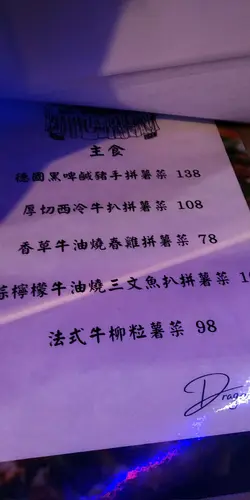 主食
德國黑啤鹹豬手拼薯菜 138
厚切西冷牛扒拼薯菜 108
香草牛油燒春雞拼薯菜 78
檸檬牛油燒三文魚扒拼薯菜
法式牛柳粒薯菜 98
Drag